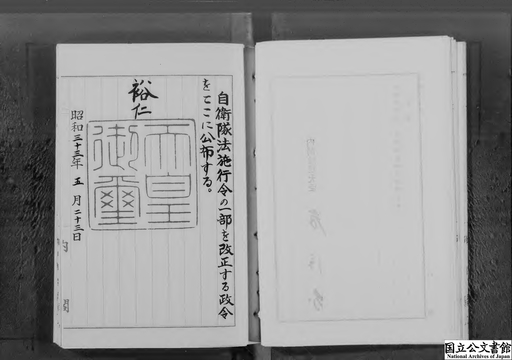 自衛隊法施行令の一部を改正する政令
をここに公布する。
裕仁
天皇
御璽
昭和三十三年五月二十三日
国立公文書館
National Archives of Japan